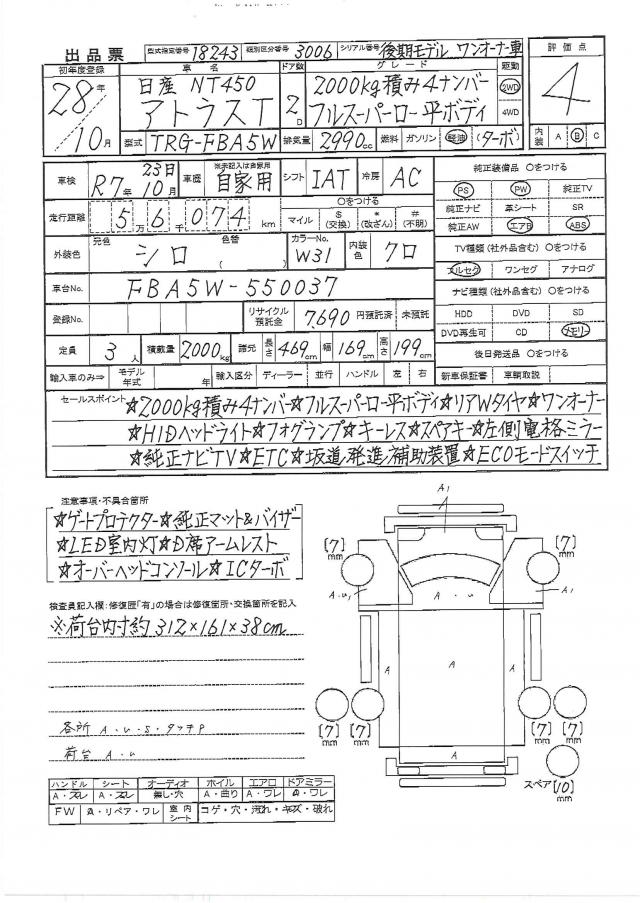 出品票 型式指定番号 18243 類別区分番号 3006 シリアル番号 後期モデル ワンオーナー車
初年度登録 車名 ドア数 グレード 駆動 評価点
28年 日産 NT450 2D 2000kg積み4ナンバー 2WD 4
10月 アトラスT フルスーパーロー平ボディ 4WD
型式 TRG-FBA5W 排気量 2990cc 燃料 ガソリン 軽油 (ターボ) 内装 A B C
車検 R7年 10月 23日 車歴 ※未記入は自家用 自家用 シフト IAT 冷房 AC 純正装備品 〇をつける
PS PW 純正TV
走行距離 5万6千074km 〇をつける マイル $(交換) *(改ざん) #(不明) 純正ナビ 革シート SR
純正AW エアB ABS
外装色 元色 シロ 色替 ( ) カラーNo. W31 内装色 クロ TV種類(社外品含む) 〇をつける
フルセグ ワンセグ アナログ
車台No. FBA5W-550037 ナビ種類(社外品含む) 〇をつける
登録No. リサイクル預託金 7,690円預託済 未預託 HDD DVD SD
DVD再生可 CD メモリー
定員 3人 積載量 2000kg 諸元 長さ 469cm 幅 169cm 高さ 199cm 後日発送品 〇をつける
輸入車のみ⇒ モデル年式 年 輸入区分 ディーラー 並行 ハンドル 左 右 新車保証書 車輌取説
セールスポイント ☆2000kg積み4ナンバー☆フルスーパーロー平ボディ☆リアWタイヤ☆ワンオーナー
☆HIDヘッドライト☆フォグランプ☆キーレス☆スペアキー☆左側電格ミラー
☆純正ナビTV☆ETC☆坂道発進補助装置☆ECOモードスイッチ
注意事項・不具合箇所
☆ゲートプロテクター☆純正マット&バイザー
☆LED室内灯☆D席アームレスト
☆オーバーヘッドコンソール☆ICターボ
検査員記入欄:修復歴「有」の場合は修復箇所・交換箇所を記入
※荷台内寸約312×161×38cm
各所 A・U・S・タッチP
荷台 A・U
ハンドル シート オーディオ ホイル エアロ ドアミラー
A・スレ A・スレ 無し・穴 A・曲り A・ワレ A・ワレ
FW A・リペア・ワレ 室内シート コゲ・穴・汚れ・キズ・破れ
A1
[7]mm [7]mm
A・U1 A・U A・A1
A A A
[7]mm [7]mm [7]mm [7]mm
A
スペア [10]mm